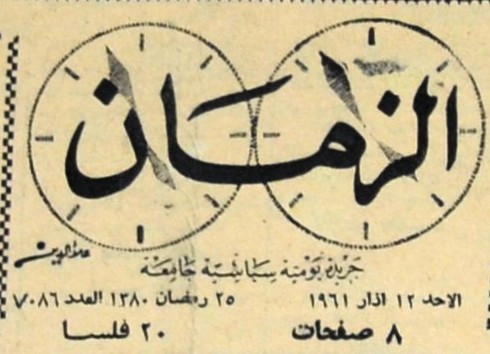 الزمان
علاء الدين
جريدة يومية سياسية جامعة
الاحد ١٢ اذار ١٩٦١ ٢٥ رمضان ١٣٨٠ العدد ٧٠٨٦
٨ صفحات ٢٠ فلسا